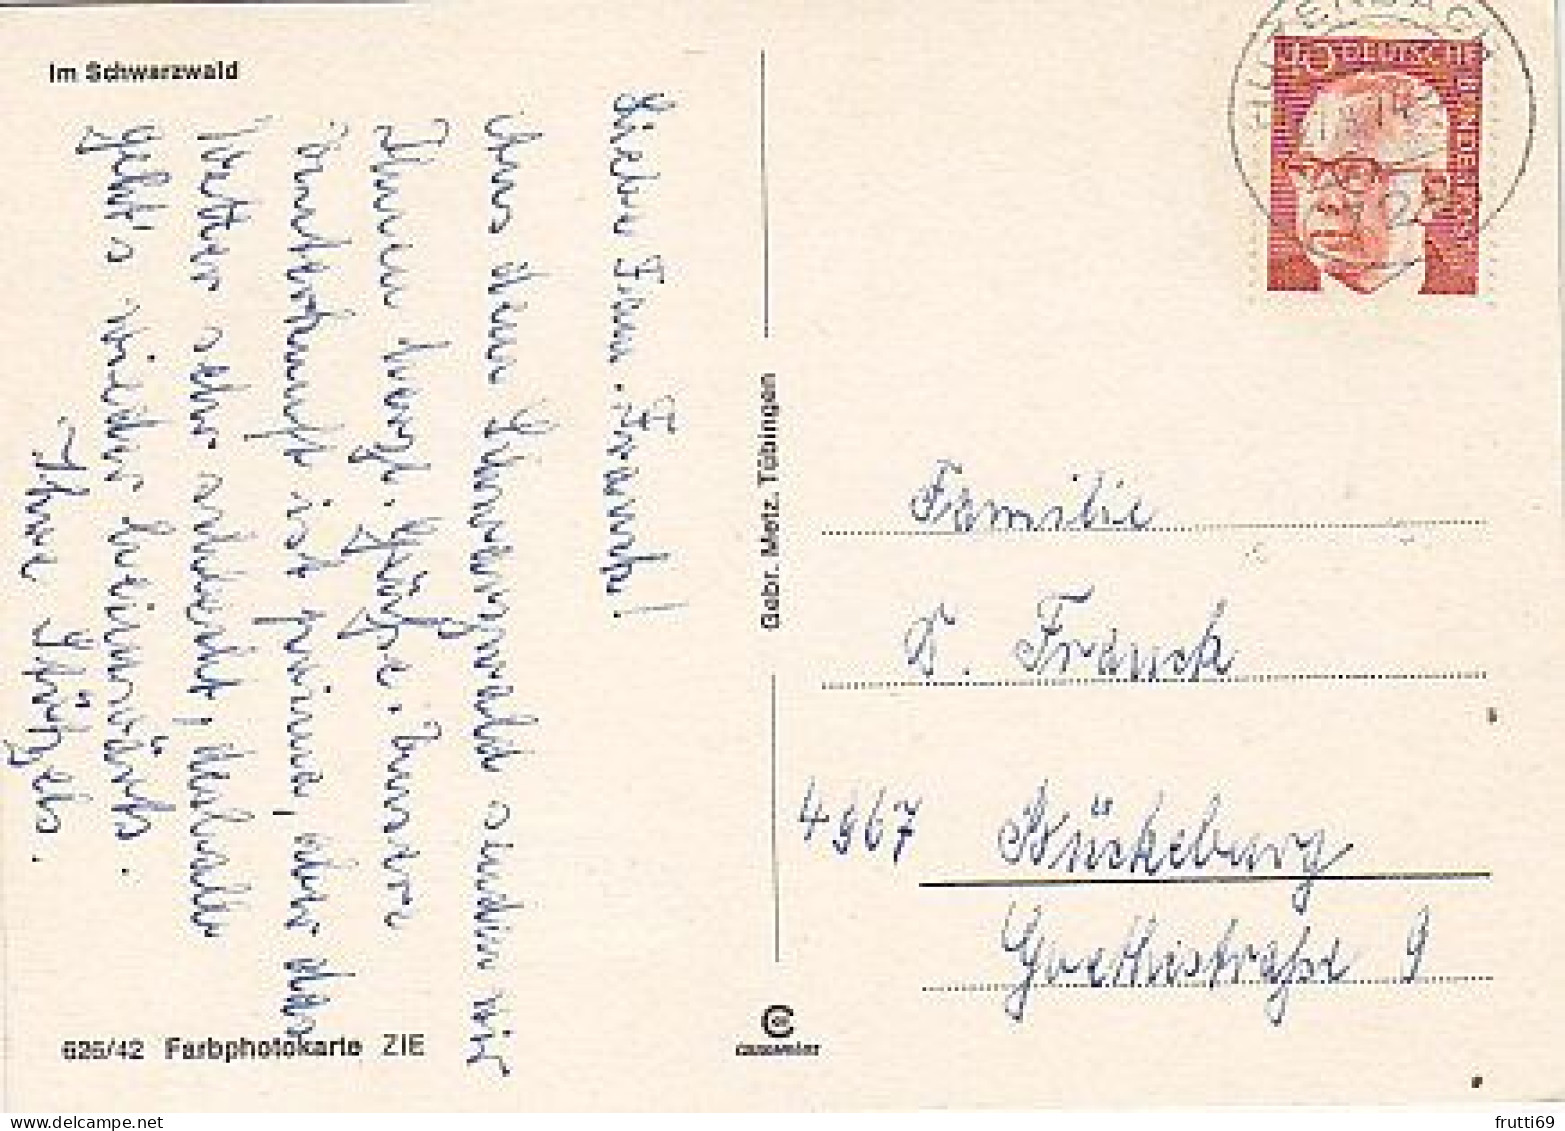 Im Schwarzwald
Liebe Frau Franck!
Aus dem Schwarzwald senden wir
Ihnen herzl. Grüße. Unsere
Unterkunft ist prima, aber das
Wetter sehr schlecht, deshalb
geht's wieder heimwärts.
Ihre
625/42 Farbphotokarte ZIE
Gebr. Metz, Tübingen
DEUTSCHE BUNDESPOST
Familie
K. Franck
4967 Bückeburg
Goethestraße 9
frutti69